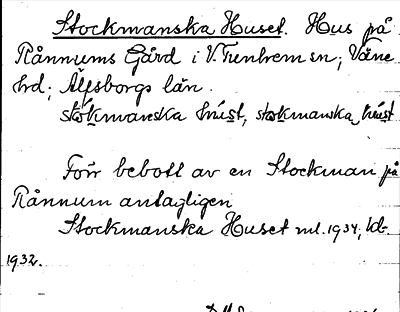 Stockmanska Huset. Hus på
Rånnums Gård i V. Tunhem sn; Väne
hd; Älfsborgs län.
stokmanska hùst, stokmanska hùst
Förr bebott av en Stockman på
Rånnum antagligen
Stockmanska Huset ml. 1934; kb.
1932.